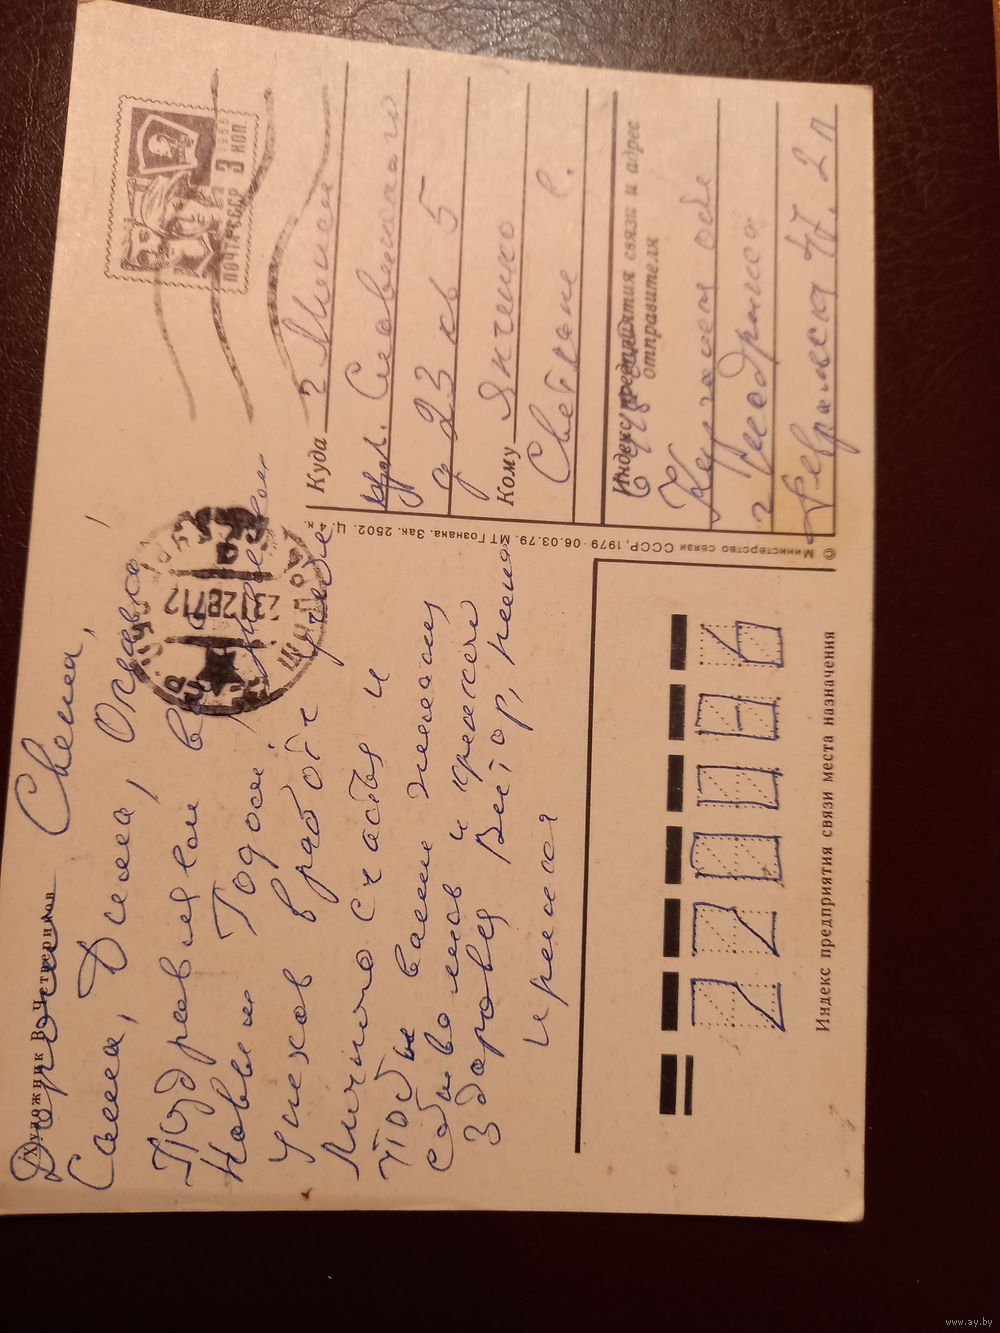 Художник В. Четвериков
Дорогие Света,
Саша, Дима, Оксана!
Поздравляем вас
Новым Годом.
Успехов в работе учебе
Личного счастья и
чтобы ваши
и крепкого
здоровья
ПОЧТА СССР 3 КОП.
1966
231287 12
ШАДР
Куда г Минск
ул. Славинского
д 23 кв 5
Кому Янченко
Светлане С.
Индекс предприятия связи и адрес
отправителя
Курганская обл
г Шадринск
Февральская 47. 2 п
© Министерство связи СССР, 1979. 06.03.79. МТ Гознака. Зак. 2502. Ц. 4 к.
220086
Индекс предприятия связи места назначения
www.ay.by